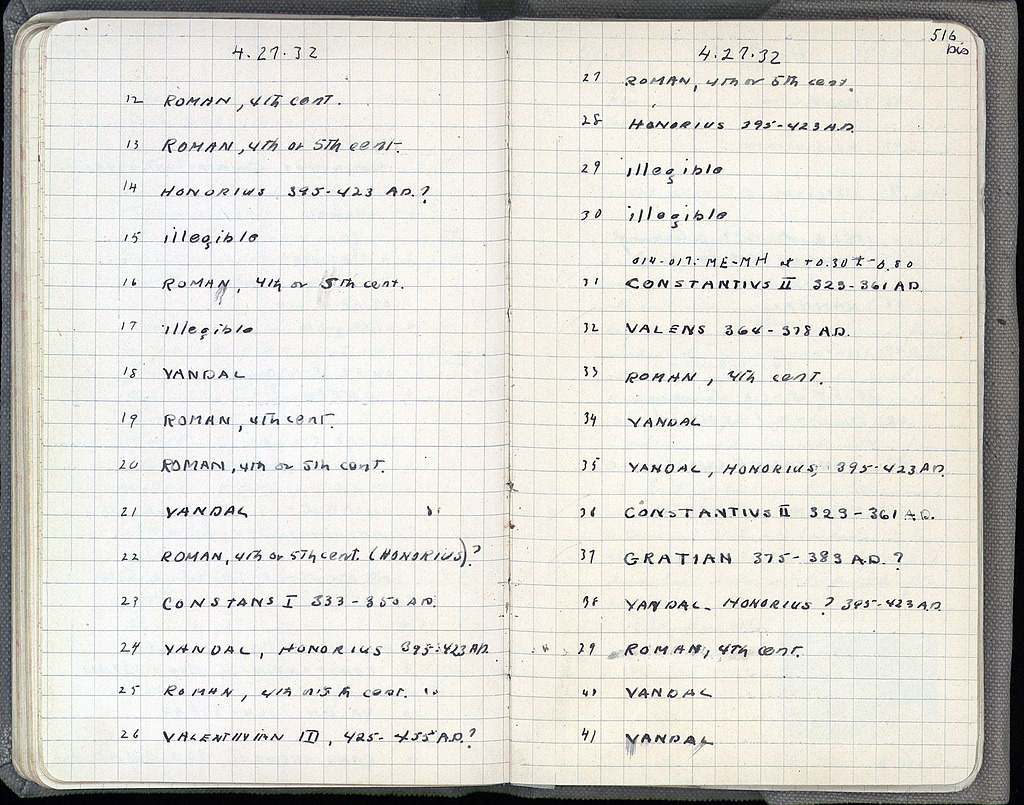 4.27.32
12 ROMAN, 4th cent.
13 ROMAN, 4th or 5th cent.
14 HONORIUS 395-423 A.D.?
15 illegible
16 ROMAN, 4th or 5th cent.
17 illegible
18 VANDAL
19 ROMAN, 4th cent.
20 ROMAN, 4th or 5th cent.
21 VANDAL
22 ROMAN, 4th or 5th cent. (HONORIUS)?
23 CONSTANS I 333-350 A.D.
24 VANDAL, HONORIUS 395-423 A.D.
25 ROMAN, 4th or 5th cent.
26 VALENTINIAN III, 425-455 A.D.?
516 bis
4.27.32
27 ROMAN, 4th or 5th cent.
28 HONORIUS 395-423 A.D.
29 illegible
30 illegible
014-017: ME-MH at +0.30 to -0.80
31 CONSTANTIUS II 323-361 A.D.
32 VALENS 364-378 A.D.
33 ROMAN, 4th cent.
34 VANDAL
35 VANDAL, HONORIUS, 395-423 A.D.
36 CONSTANTIUS II 323-361 A.D.
37 GRATIAN 375-383 A.D.?
38 VANDAL- HONORIUS? 395-423 A.D.
39 ROMAN, 4th cent.
40 VANDAL
41 VANDAL